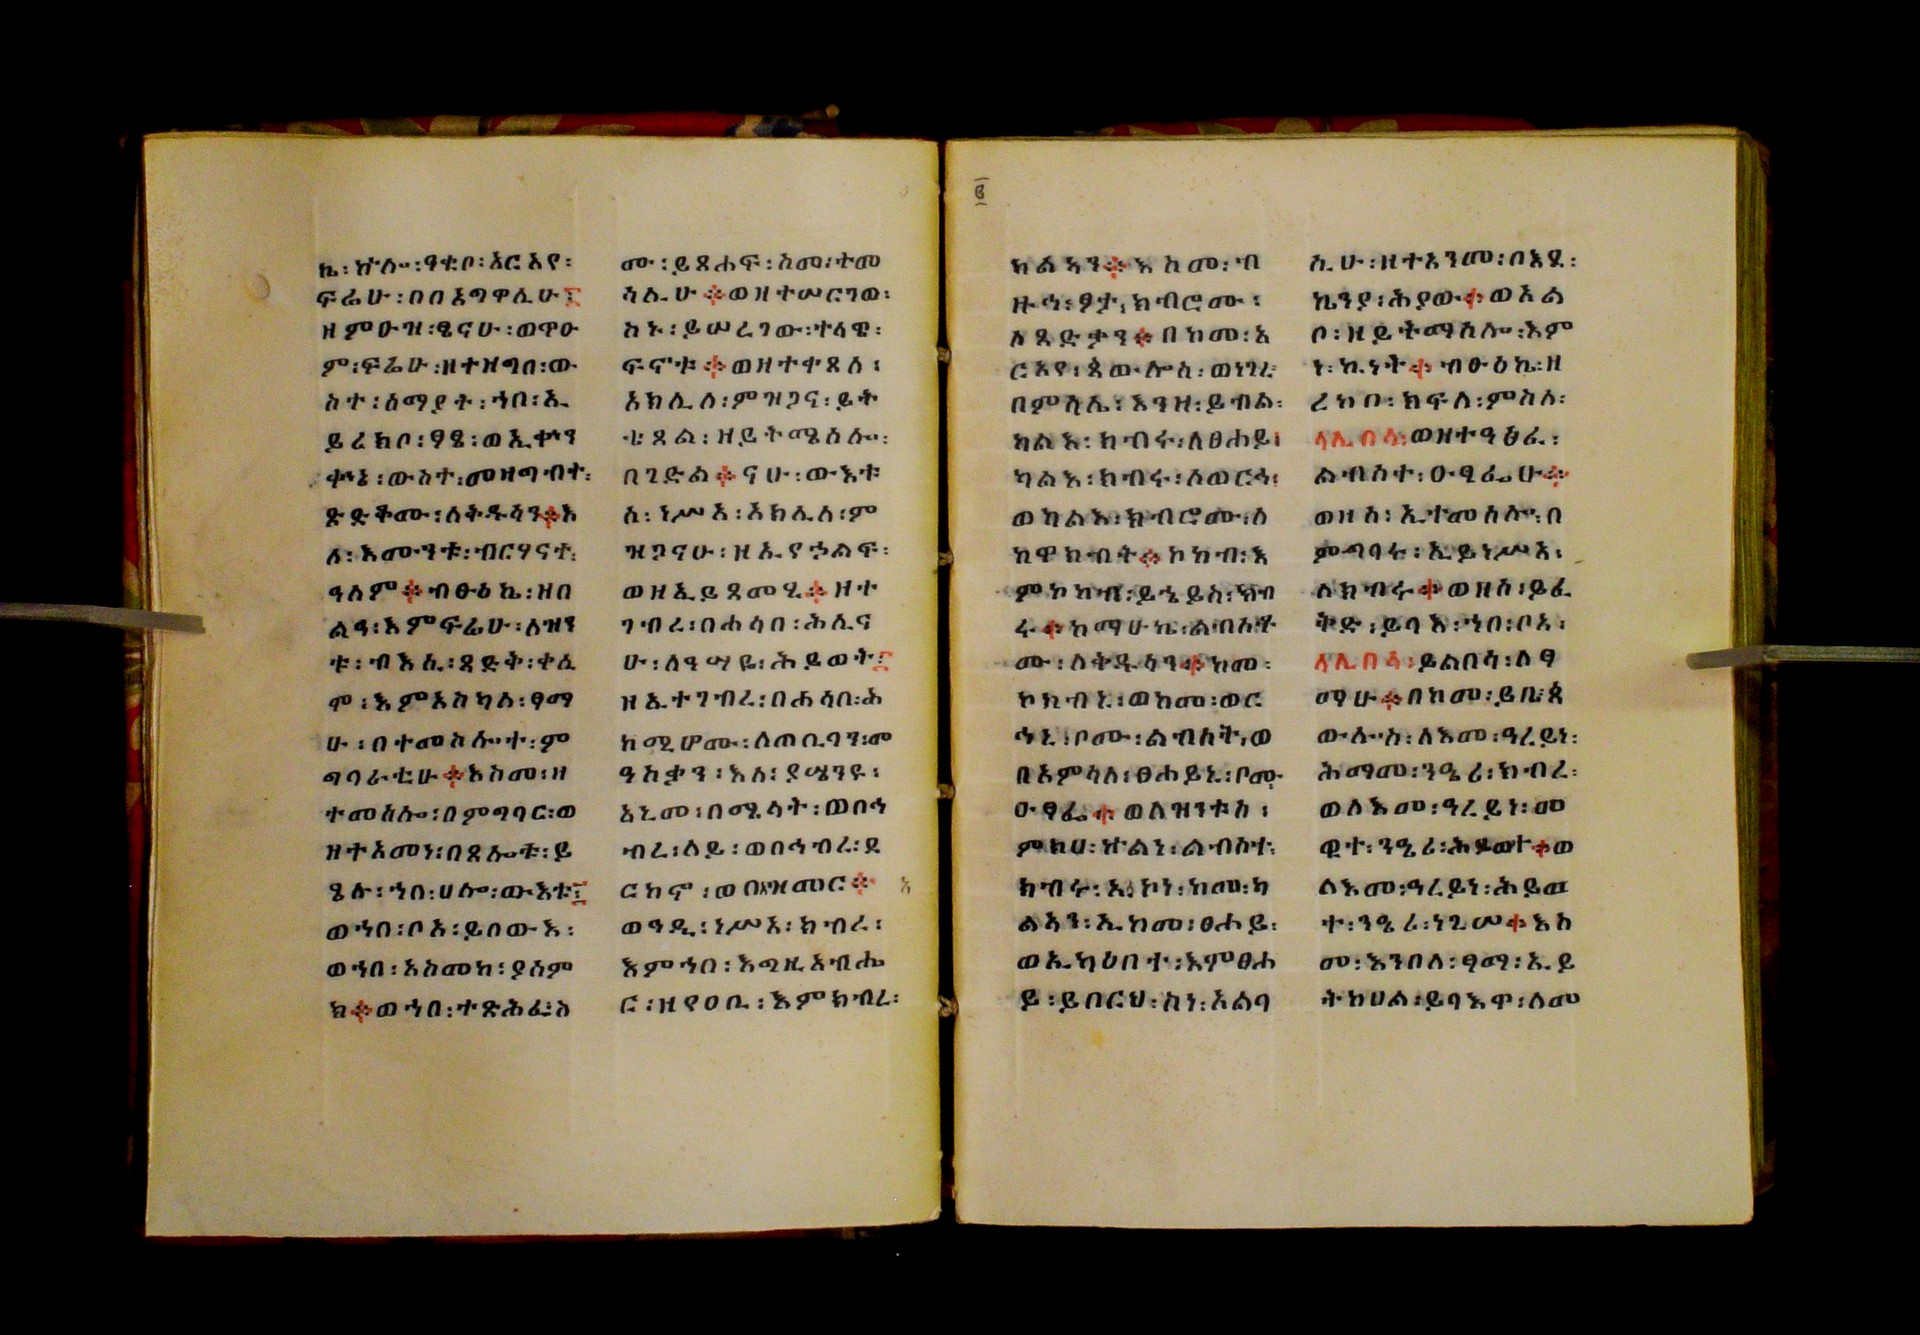 ኬ፡ ኵሎ፡ ዓቂቦ፡ አርአየ፡
ፍሬሁ፡ በበ እግዋሊሁ፤
ዘምዑዝ፡ ፄናሁ፡ ወጥዑ
ም፡ ፍሬሁ፡ ዘተዝግበ፡ ው
ስተ፡ ሰማያት፡ ኀበ፡ ኢ
ይረክቦ፡ ፃፄ፡ ወኢቍንቍኔ፡
ውስተ፡ መዛግብት፡
ጽድቆሙ፡ ለቅዱሳን፨ እ
ለ፡ እሙንቱ፡ ብርሃናተ፡
ዓለም፨ ብፁዕኬ፡ ዘበ
ልዓ፡ እምፍሬሁ፡ ለዝን
ቱ፡ ብእሲ፡ ጻድቅ፡ ቀሲ
ሞ፡ እምአስካለ፡ ፃማ
ሁ፡ በተመስሎተ፡ ም
ግባራቲሁ፨ እስመ፡ ዘ
ተመሰሎ፡ በምግባር፡ ወ
ዘተአመነ፡ በጸሎቱ፡ ይ
ሄሉ፡ ኀበ፡ ሀሎ፡ ውእቱ፤
ወኀበ፡ ቦአ፡ ይበውእ፡
ወኀበ፡ አስመከ፡ ያሰም
ክ፨ ወኀበ፡ ተጽሕፈ፡ ስ
ሙ፡ ይጸሐፍ፡ ስመ፡ ተመ
ሳሊሁ፨ ወዘተሠርገወ፡
ስኑ፡ ይሠረገው፡ ተላዌ፡
ፍኖቱ፨ ወዘተቀጸለ፡
አክሊለ፡ ምዝጋና፡ ይት
ቄጸል፡ ዘይትሜሰሎ፡
በገድል፨ ናሁ፡ ውእቱ
ሰ፡ ነሥአ፡ አክሊለ፡ ም
ዝጋናሁ፡ ዘኢየኃልፍ፡
ወዘኢይጸመሂ፨ ዘተ
ገብረ፡ በሐሳበ፡ ሕሊና
ሁ፡ ለዓሣዪ፡ ሕይወት፤
ዘኢተገብረ፡ በሐሳበ፡ ሕ
ከሚሆሙ፡ ለጠቢባን፡ መ
ዓስቃን፡ እለ፡ ያሤንዩ፡
አኒመ፡ በሜላት፡ ወበኅ
ብረ፡ ለይ፡ ወበኅብረ፡ ደ
ርከኖ፡ ወበአዝመር፨
ወዓዲ፡ ነሥአ፡ ክብረ፡
እምኀበ፡ እግዚአብሔ
ር፡ ዘየዐቢ፡ እምክብረ፡
፪
ክልኣን፨ እስመ፡ ብ
ዙኅ፡ ፆታ፡ ክብሮሙ፡
ለጻድቃን፨ በከመ፡ አ
ርአየ፡ ጳውሎስ፡ ወነገረ፡
በምሳሌ፡ እንዘ፡ ይብል፡
ክልእ፡ ክብሩ፡ ለፀሐይ፤
ካልእ፡ ክብሩ፡ ለወርኅ፤
ወካልእ፡ ክብሮሙ፡ ለ
ከዋክብት፨ ኮከብ፡ እ
ምኮከብ፡ ይኄይስ፡ ክብ
ሩ፨ ከማሁኬ፡ ልብሰቶ
ሙ፡ ለቅዱሳን፨ ከመ፡
ኮክብኒ፡ ወከመ፡ ወር
ኅኒ፡ ቦሙ፡ ልብሰት፡ ወ
በአምሳለ፡ ፀሐይኒ፡ ቦሙ፡
ዑፃፌ፨ ወለዝንቱሰ፡
ምክሀ፡ ኵልነ፡ ልብስተ፡
ክብሩ፡ ኢኮነ፡ ከመ፡ ካ
ልኣን፡ ኢከመ፡ ፀሐይ፡
ወኢካዕበተ፡ እምፀሐ
ይ፡ ይበርህ፡ ስነ፡ አልባ
ሲሁ፡ ዘተአንመ፡ በእደ፡
ኬንያ፡ ሕያው፨ ወአል
ቦ፡ ዘይትማሰሎ፡ እም
ነ፡ ኪነት፨ ብፁዕኬ፡ ዘ
ረከቦ፡ ክፍለ፡ ምስለ፡
ላሊበላ፡ ወዘተዓፅፈ፡
ልብሰተ፡ ዑፃፌሁ፨
ወዘሰ፡ ኢተመሰሎ፡ በ
ምግባሩ፡ ኢይነሥእ፡
ለክብሩ፨ ወዘሰ፡ ይፈ
ቅድ፡ ይባእ፡ ኀበ፡ ቦአ፡
ላሊበላ፡ ይልበሳ፡ ለፃ
ማሁ፨ በከመ፡ ይቤ፡ ጳ
ውሎስ፡ ለእመ፡ ዓረይነ፡
ሕማመ፡ ንዔሪ፡ ክብረ፡
ወለእመ፡ ዓረይነ፡ መ
ዊተ፡ ንዔሪ፡ ሕይወተ፨ ወ
ለእመ፡ ዓረይነ፡ ሕይወ
ተ፡ ንዔሪ፡ ነጊሠ፨ እስ
መ፡ እንበለ፡ ፃማ፡ ኢይ
ትከሀል፡ ይባእዋ፡ ለመ